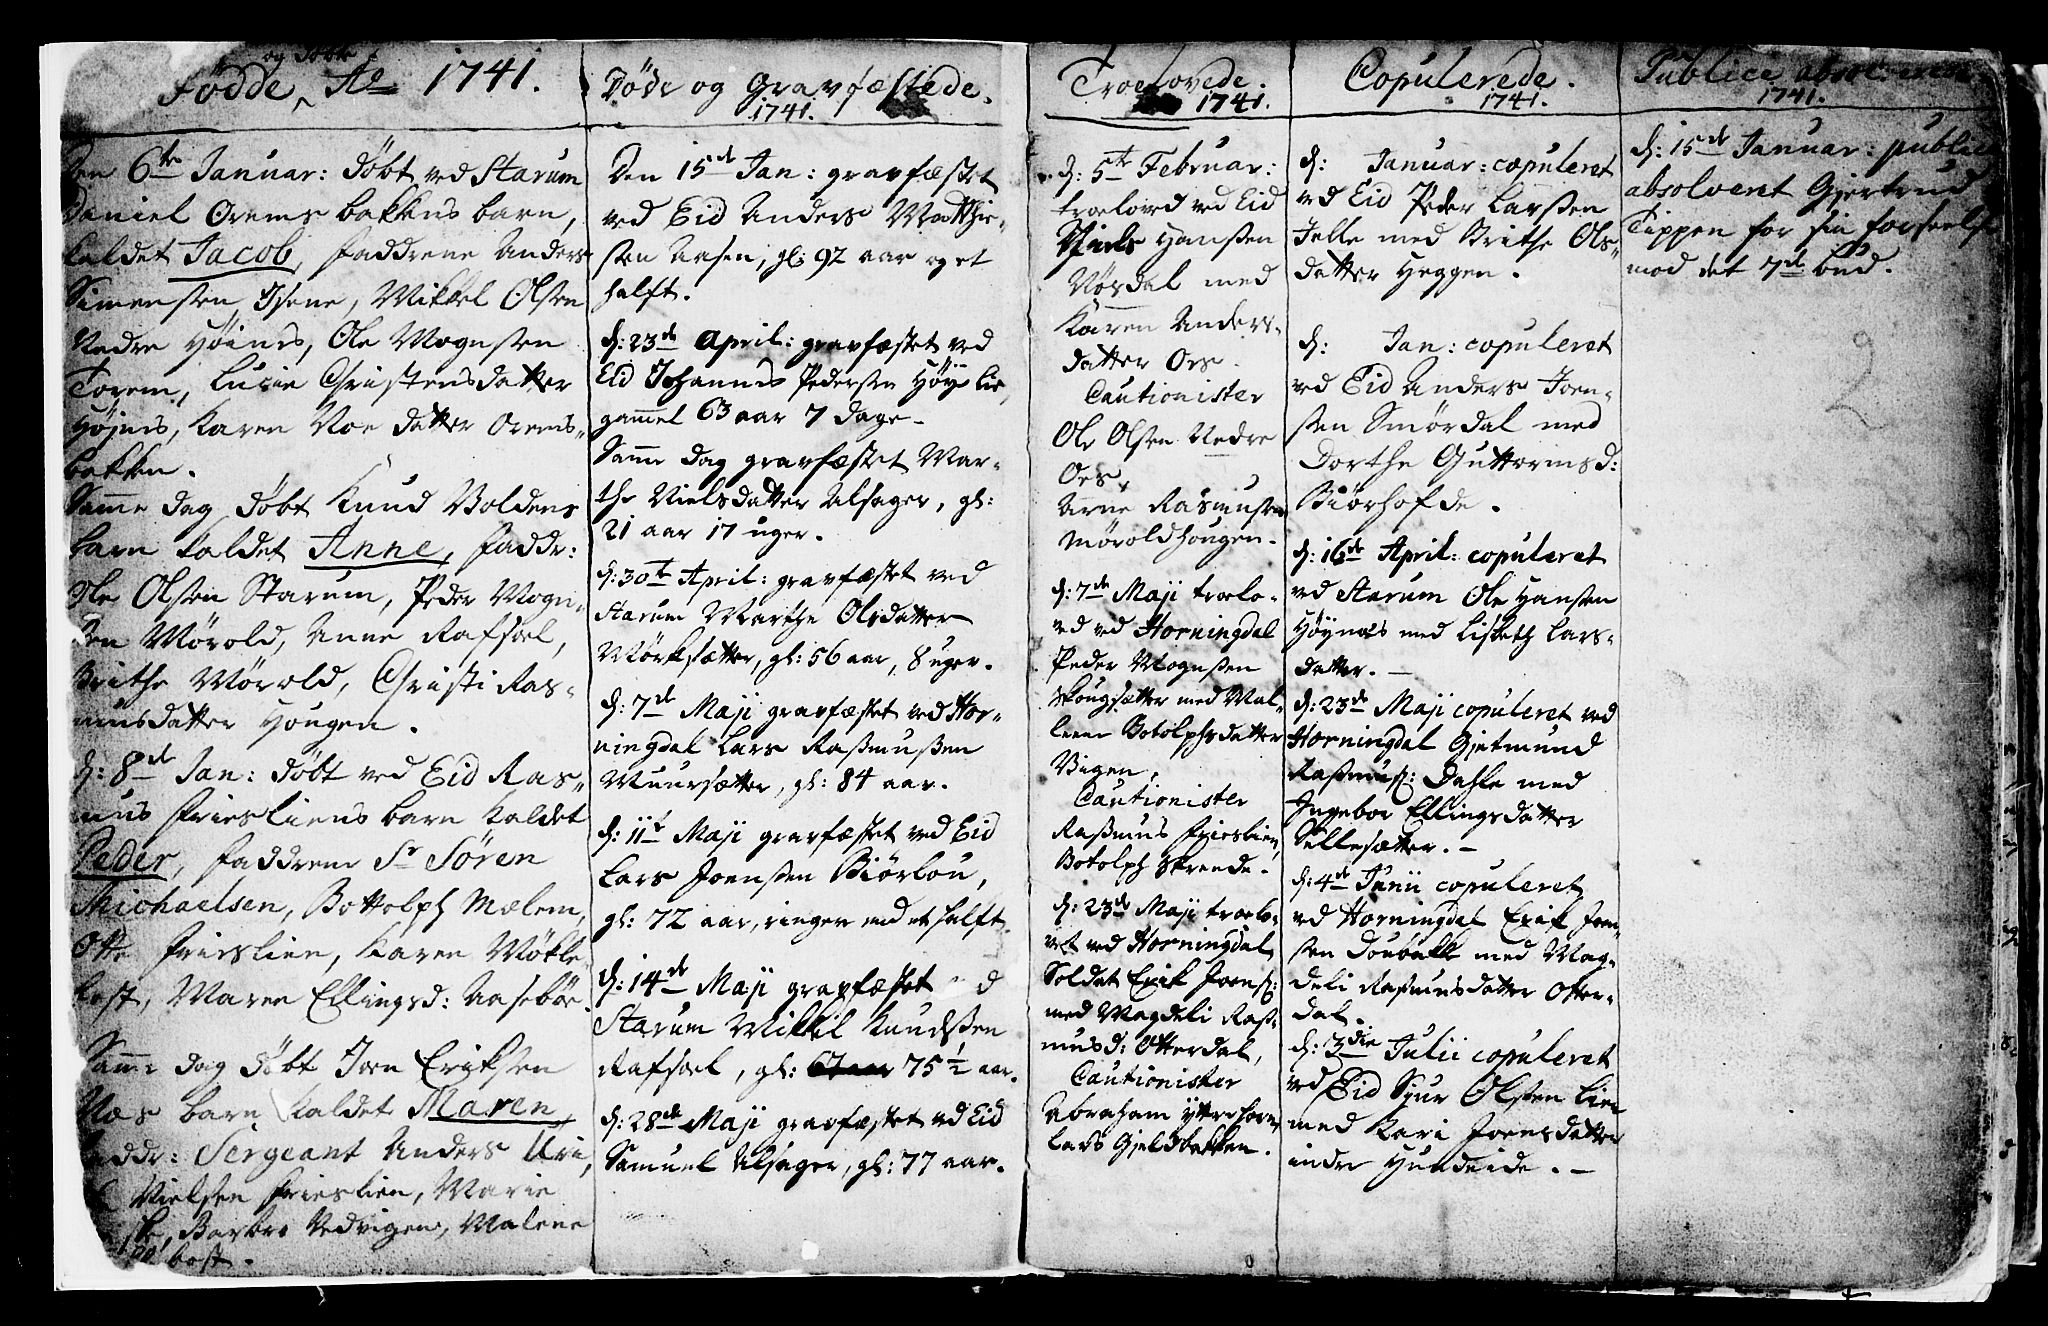 Fødde og døbte Ao 1741.
Den 6te Januar: døbt ved Starum
Daniel Orems bakkens barn,
kaldet Jacob, faddrene Anders
Simensen Isene, Mikkel Olsen
Nedre Høines, Ole Mognsen
Torem, Lucie Christensdatter
Højnes, Karen Roe datter Orems-
bakken.
Samme dag døbt Knud Voldens
barn kaldet Anne, faddr:
Ole Olsen Starum, Peder Mogn-
sen Mørold, Anne Rafsæl,
Brithe Mørold, Christi Ras-
musdatter Hougen.
d: 8de Jan: døbt ved Eid Ras-
mus Frieslien barn kaldet
Peder, faddrene Sr Søren
Michaelsen, Bottolph Mælem,
Otte Frieslien, Karen Møkle-
bost, Maren Ellingsd: Aasebøe.
Samme dag døbt Joen Eriksen
Nos barn kaldet Maren,
faddr: Sergeant Anders Uri,
Nielsen Frieslien, Marie
Barbro Nedvigen, Malene
bost.
Døde og Gravfæstede.
1741.
Den 15de Jan: gravfæstet
ved Eid Anders Matthie-
sen Aasen, gl: 92 aar og et
halft.
d: 23de April: gravfæstet ved
Eid Johannes Pedersen Høye lie,
gammel 63 aar 7 dage.
Samme dag gravfæstet Mar-
the Nielsdatter Alsager, gl:
21 aar 17 uger.
d: 30te April: gravfæstet ved
Starum Marthe Olsdatter
Mørksætter, gl: 56 aar, 8 uger.
d: 7de Maji gravfæstet ved Hor-
ningdal Lars Rasmussen
Muursætter, gl: 84 aar.
d: 11te Maji gravfæstet ved Eid
Lars Joenssen Biørlou,
gl: 72 aar, ringer end et halft.
d: 14de Maji gravfæstet ved
Starum Mikkel Knudssen
Rafsæl, gl: 67 aar 75 1/2 aar.
d: 28de Maji gravfæstet ved Eid
Samuel Alsager, gl: 77 aar.
Troelovede.
1741.
d: 5te Februar:
troeloved ved Eid
Niels Hanssen
Nørdal med
Karen Anders-
datter Oes.
Cautionister
Ole Olsen Nedre
Oes,
Arne Rasmusen
Møroldhougen.
d: 7de Maji troelo-
ved ved Horningdal
Peder Mognssen
Skougsætter med Mal-
lene Botolphsdatter
Vigen,
Cautionister
Rasmus Frieslien,
Botolph Skreede.
d: 23de Maji troelo-
vet ved Horningdal
Soldat Erik Joens:
med Magdeli Ras-
musd: Otterdal,
Cautionister
Abraham Ytrehorn
Lars Gjeldsbakken.
Copulerede.
1741.
d: Januar: copuleret
ved Eid Peder Larssen
Felle med Brithe Ols-
datter Heggen.
d: Jan: copuleret
ved Eid Anders Joen-
sen Smørdal med
Dorthe Guttormsd:
Biørhofde.
d: 16de April: copuleret
ved Starum Ole Hanssen
Høynes med Lisbeth Lars-
datter.
d: 23de Maji copuleret ved
Horningdal Gjetmund
Rasmus: Dahle med
Ingebor Ellingsdatter
Sellesætter.
d: 4de Junii copuleret
ved Horningdal Erik Joen-
sen Doubakk med Mag-
deli Rasmusdatter Otter-
dal.
d: 3die Julii copuleret
ved Eid Sjur Olssen Lien
med Kari Joensdatter
indre Hundeide.
Publice absolverede.
1741.
d: 15de Januar: publice
absolveret Gjertrud
Tippen for sin forseelse
mod det 7de bud.
2